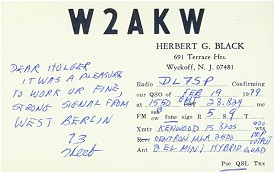 W2AKW
HERBERT G. BLACK
691 Terrace Hts.
Wyckoff, N. J. 07481
DEAR HOLGER
IT WAS A PLEASURE
TO WORK UR FINE,
STRONG SIGNAL FROM
WEST BERLIN
73
Herb
Radio DL7SP Confirming
our QSO of FEB 19 1979
at 1550 GMT 28.829 mc
FM cw fone sigs R 5 S 9 T
Xmtr KENWOOD TS 520S
Recv DENTRON MLA 2500
Ant 2 EL MINI HYBRID QUAD
Pse QSL Tnx